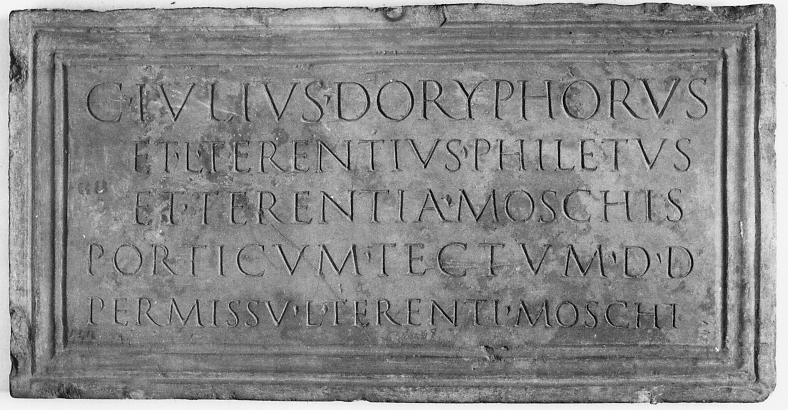 C·IVLIVS·DORYPHORVS
ET·L·TERENTIVS·PHILETVS
ET·TERENTIA·MOSCHIS
PORTICVM·TECTVM·D·D
PERMISSV·L·TERENTI·MOSCHI